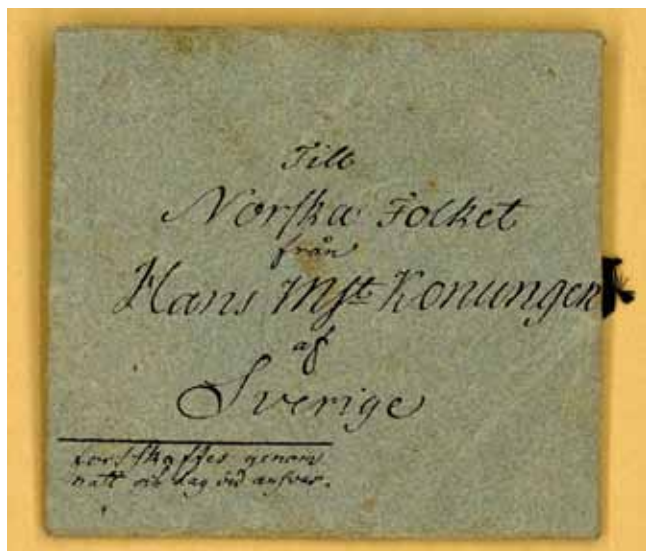 Till
Norska Folket
från
Hans Mjt Konungen
af
Sverige
fortskaffes genom
natt och dag vid answar.